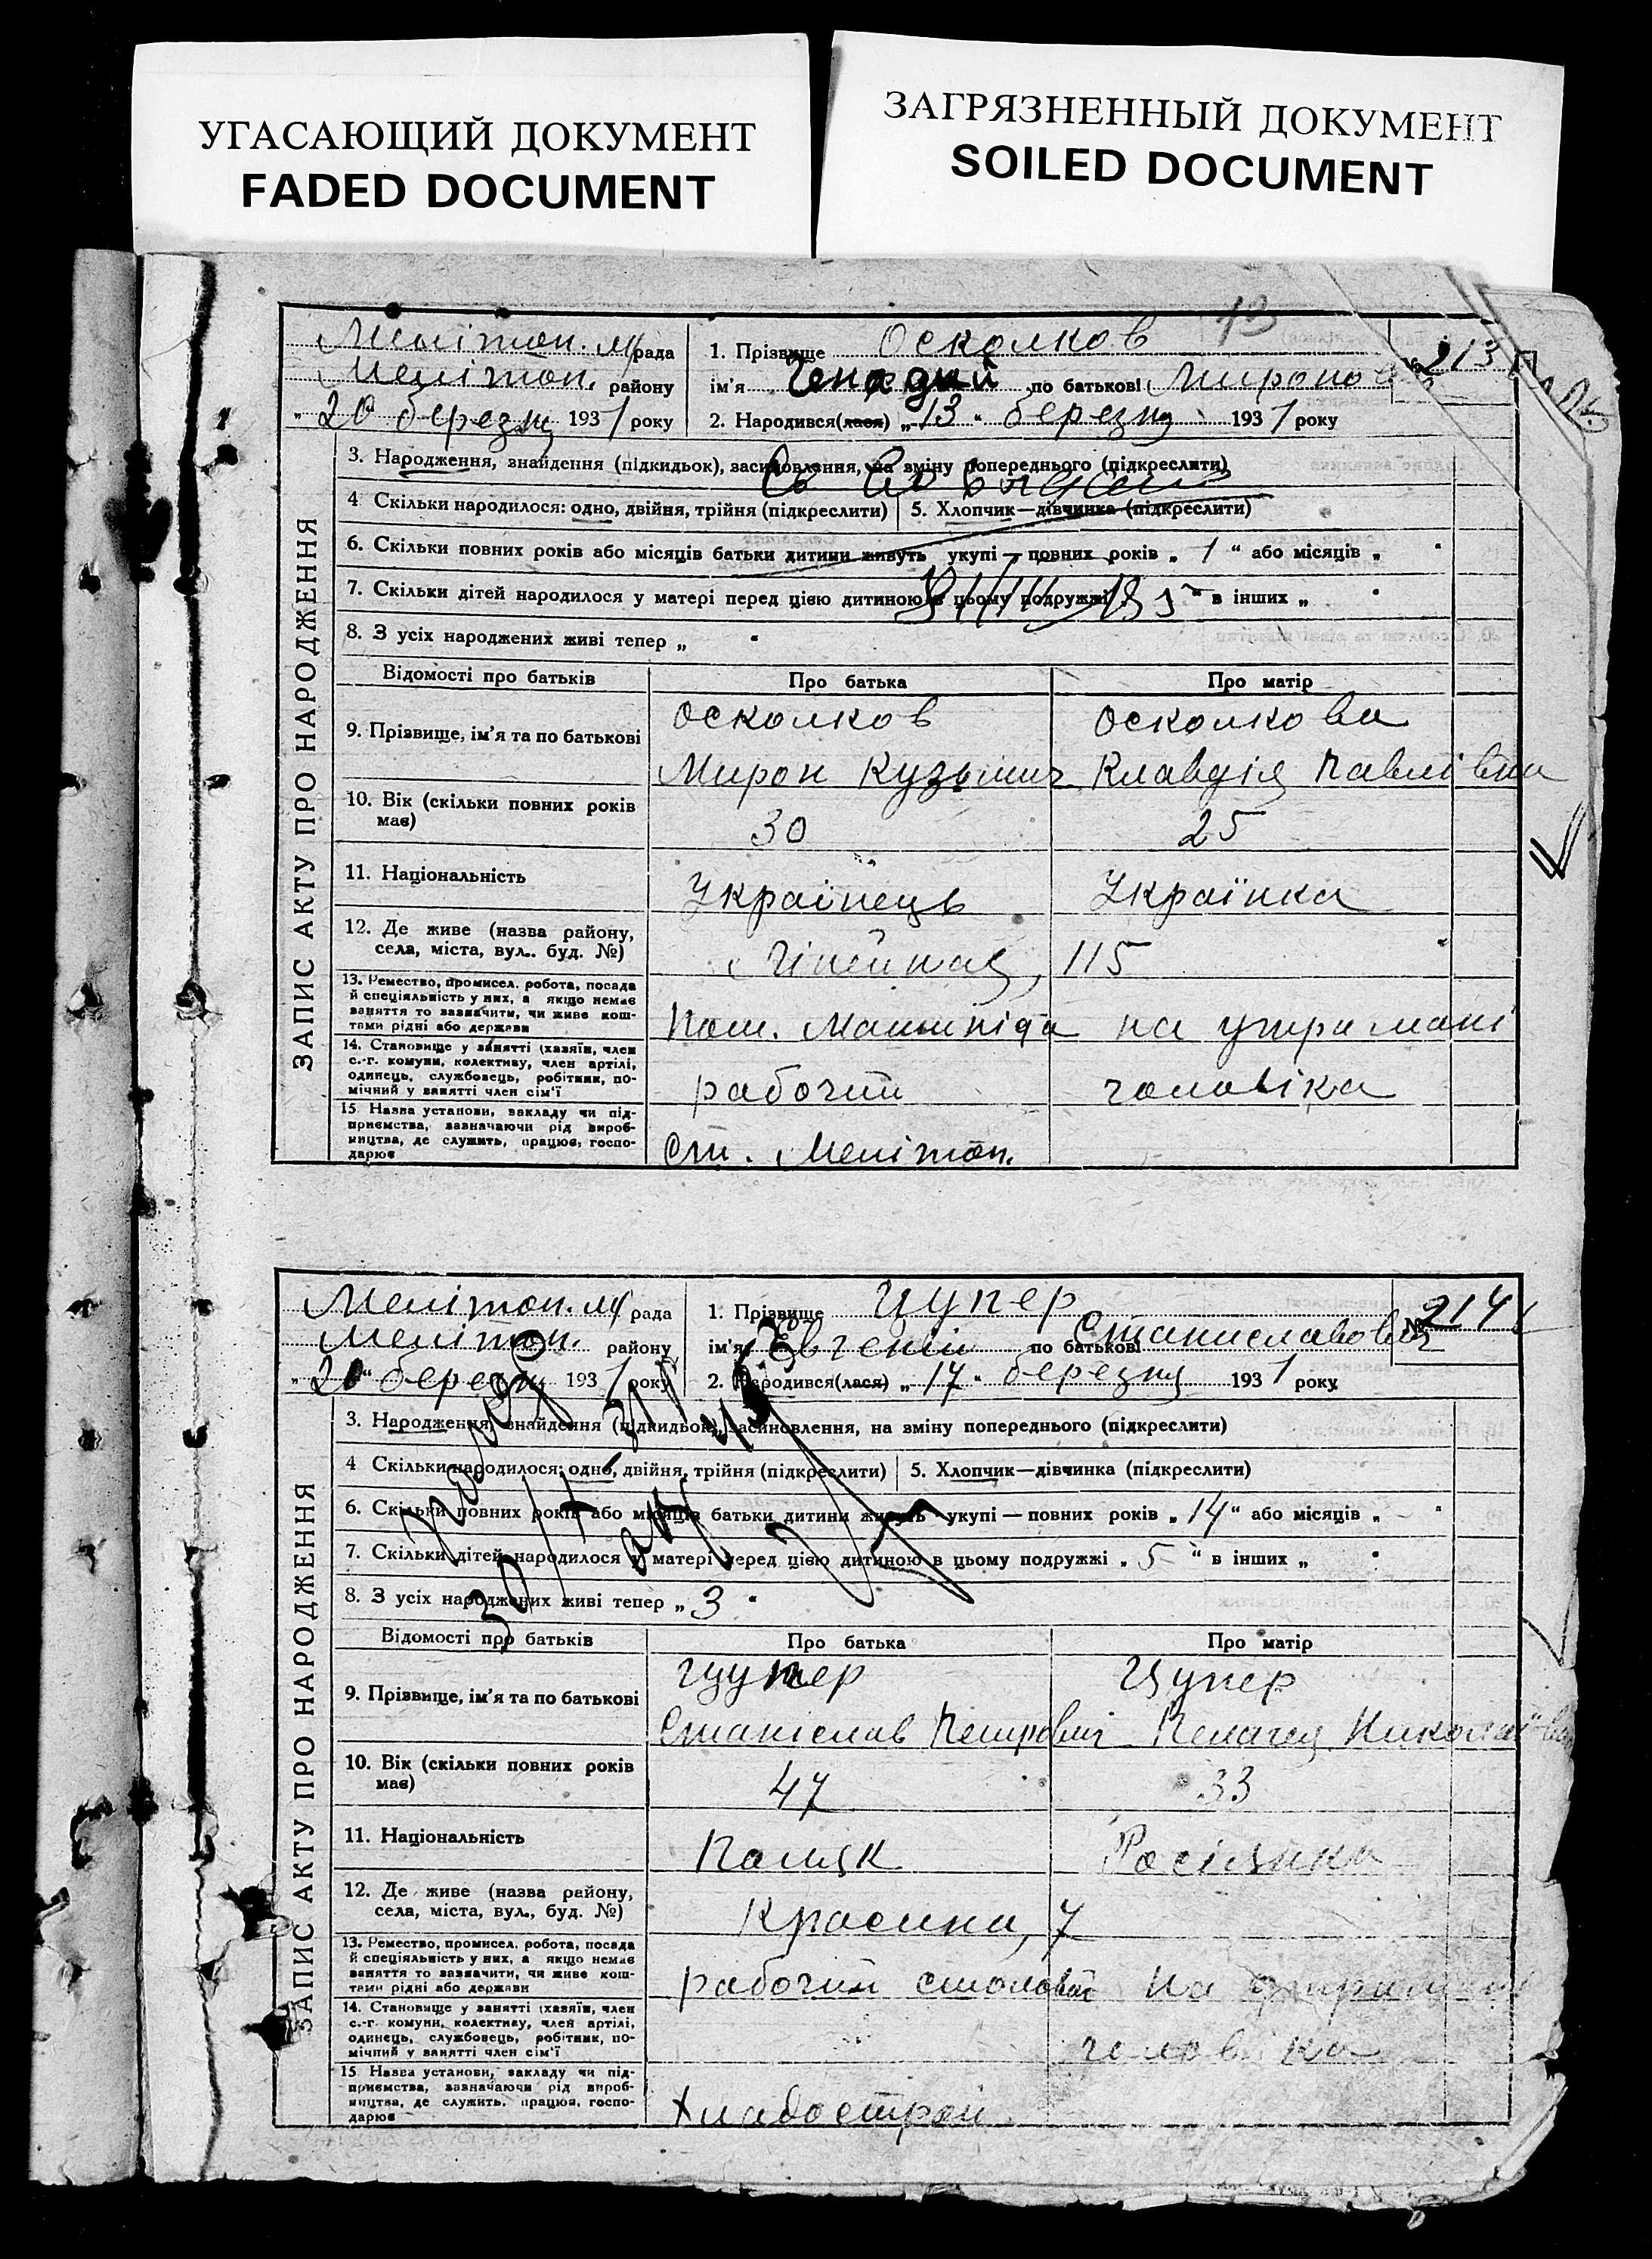 УГАСАЮЩИЙ ДОКУМЕНТ
FADED DOCUMENT
ЗАГРЯЗНЕННЫЙ ДОКУМЕНТ
SOILED DOCUMENT
13
Меліт оп. м/рада
Меліт оп. району
„ 20 березня 1931 року
1. Прізвище Осколков
№ 213
ім'я Генадий по батькові Миронов
2. Народився(лася) „ 13 “ березня 1931 року
ЗАПИС АКТУ ПРО НАРОДЖЕННЯ
3. Народження, знайдення (підкидьок), засиновлення, на зміну попереднього (підкреслити)
4 Скільки народилося: одно, двійня, трійня (підкреслити) 5. Хлопчик—дівчинка (підкреслити)
6. Скільки повних років або місяців батьки дитини живуть укупі — повних років „ 1 “ або місяців „ “
7. Скільки дітей народилося у матері перед цією дитиною в цьому подружжі „ “ в інших „ “
8. З усіх народжених живі тепер „ “
Відомості про батьків Про батька Про матір
9. Прізвище, ім'я та по батькові Осколков Осколкова
Мирон Кузьмич Клавдія Павлівна
10. Вік (скільки повних років має) 30 25
11. Національність Українець Українка
12. Де живе (назва району, села, міста, вул.. буд. №) 115
13. Ремество, промисел, робота, посада й спеціяльність у них, а якщо немає заняття то зазначити, чи живе коштами рідні або держави на утримані
14. Становище у занятті (хазяїн, член с.-г. комуни, колективу, член артілі, одинець, службовець, робітник, помічний у занятті член сім'ї рабочий чоловіка
15 Назва установи, закладу чи підприємства, зазначаючи рід виробництва, де служить, працює, господарює Ст. Меліт оп.
Меліт оп. м/рада
Меліт оп. району
„ 20 “ березня 1931 року
1. Прізвище Цупер
№ 214
ім'я Євгеній по батькові Станиславович
2. Народився(лася) „ 17 “ березня 1931 року
ЗАПИС АКТУ ПРО НАРОДЖЕННЯ
3. Народження, знайдення (підкидьок), засиновлення, на зміну попереднього (підкреслити)
4 Скільки народилося: одно, двійня, трійня (підкреслити) 5. Хлопчик—дівчинка (підкреслити)
6. Скільки повних років або місяців батьки дитини живуть укупі — повних років „ 14 “ або місяців „ - “
7. Скільки дітей народилося у матері перед цією дитиною в цьому подружжі „ 5 “ в інших „ “
8. З усіх народжених живі тепер „ 3 “
Відомості про батьків Про батька Про матір
9. Прізвище, ім'я та по батькові Цупер Цупер
Станіслав Петрович Пелагея Николаївна
10. Вік (скільки повних років має) 47 33
11. Національність Поляк Росіянка
12. Де живе (назва району, села, міста, вул., буд. №) Красина, 7
13. Ремество, промисел, робота, посада й спеціяльність у них, а якщо немає заняття то зазначити, чи живе коштами рідні або держави рабочий столовой на утримані
14. Становище у занятті (хазяїн, член с.-г. комуни, колективу, член артілі, одинець, службовець, робітник, помічний у занятті член сім'ї чоловіка
15 Назва установи, закладу чи підприємства, зазначаючи рід виробництва, де служить, працює, господарює Хладострой